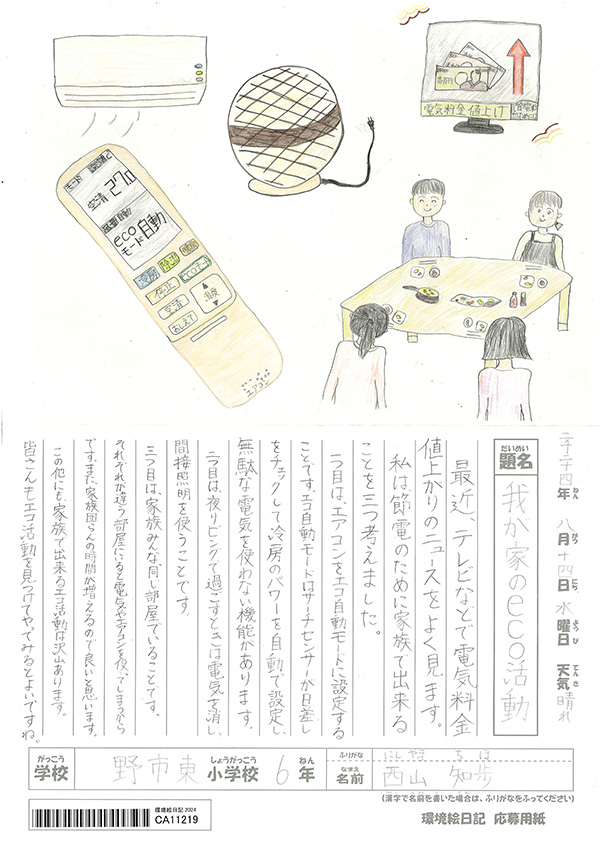 電気料金値上げ
モード
空清
27.0
風量自動
eco
モード自動
冷房
除湿
暖房
停止
ecoモード
空清
温度
おしえて
エアコン
二千二十四年 八月十四日 水曜日 天気 晴れ
ねん
がつ
にち
ようび
てんき
だいめい
題名
我が家のeco活動
最近、テレビなどで電気料金
値上がりのニュースをよく見ます。
私は節電のために家族で出来る
ことを三つ考えました。
一つ目は、エアコンをエコ自動モードに設定する
ことです。エコ自動モードはサーチセンサーが日差し
をチェックして冷房のパワーを自動で設定し
無駄な電気を使わない機能があります。
二つ目は、夜リビングで過ごすときは電気を消し、
間接照明を使うことです。
三つ目は、家族みんな同じ部屋でいることです。
それぞれが違う部屋にいると電気やエアコンを使ってしまうから
です。また、家族団らんの時間が増えるので良いと思います。
この他にも、家族で出来るエコ活動は沢山あります。
皆さんもエコ活動を見つけてやってみるとよいですね。
がっこう
学校
野市東
しょうがっこう
小学校
6
ねん
年
ふりがな
にしやま ちほ
なまえ
名前
西山 知歩
(漢字で名前を書いた場合は、ふりがなをふってください)
環境絵日記 2024
CA11219
環境絵日記 応募用紙